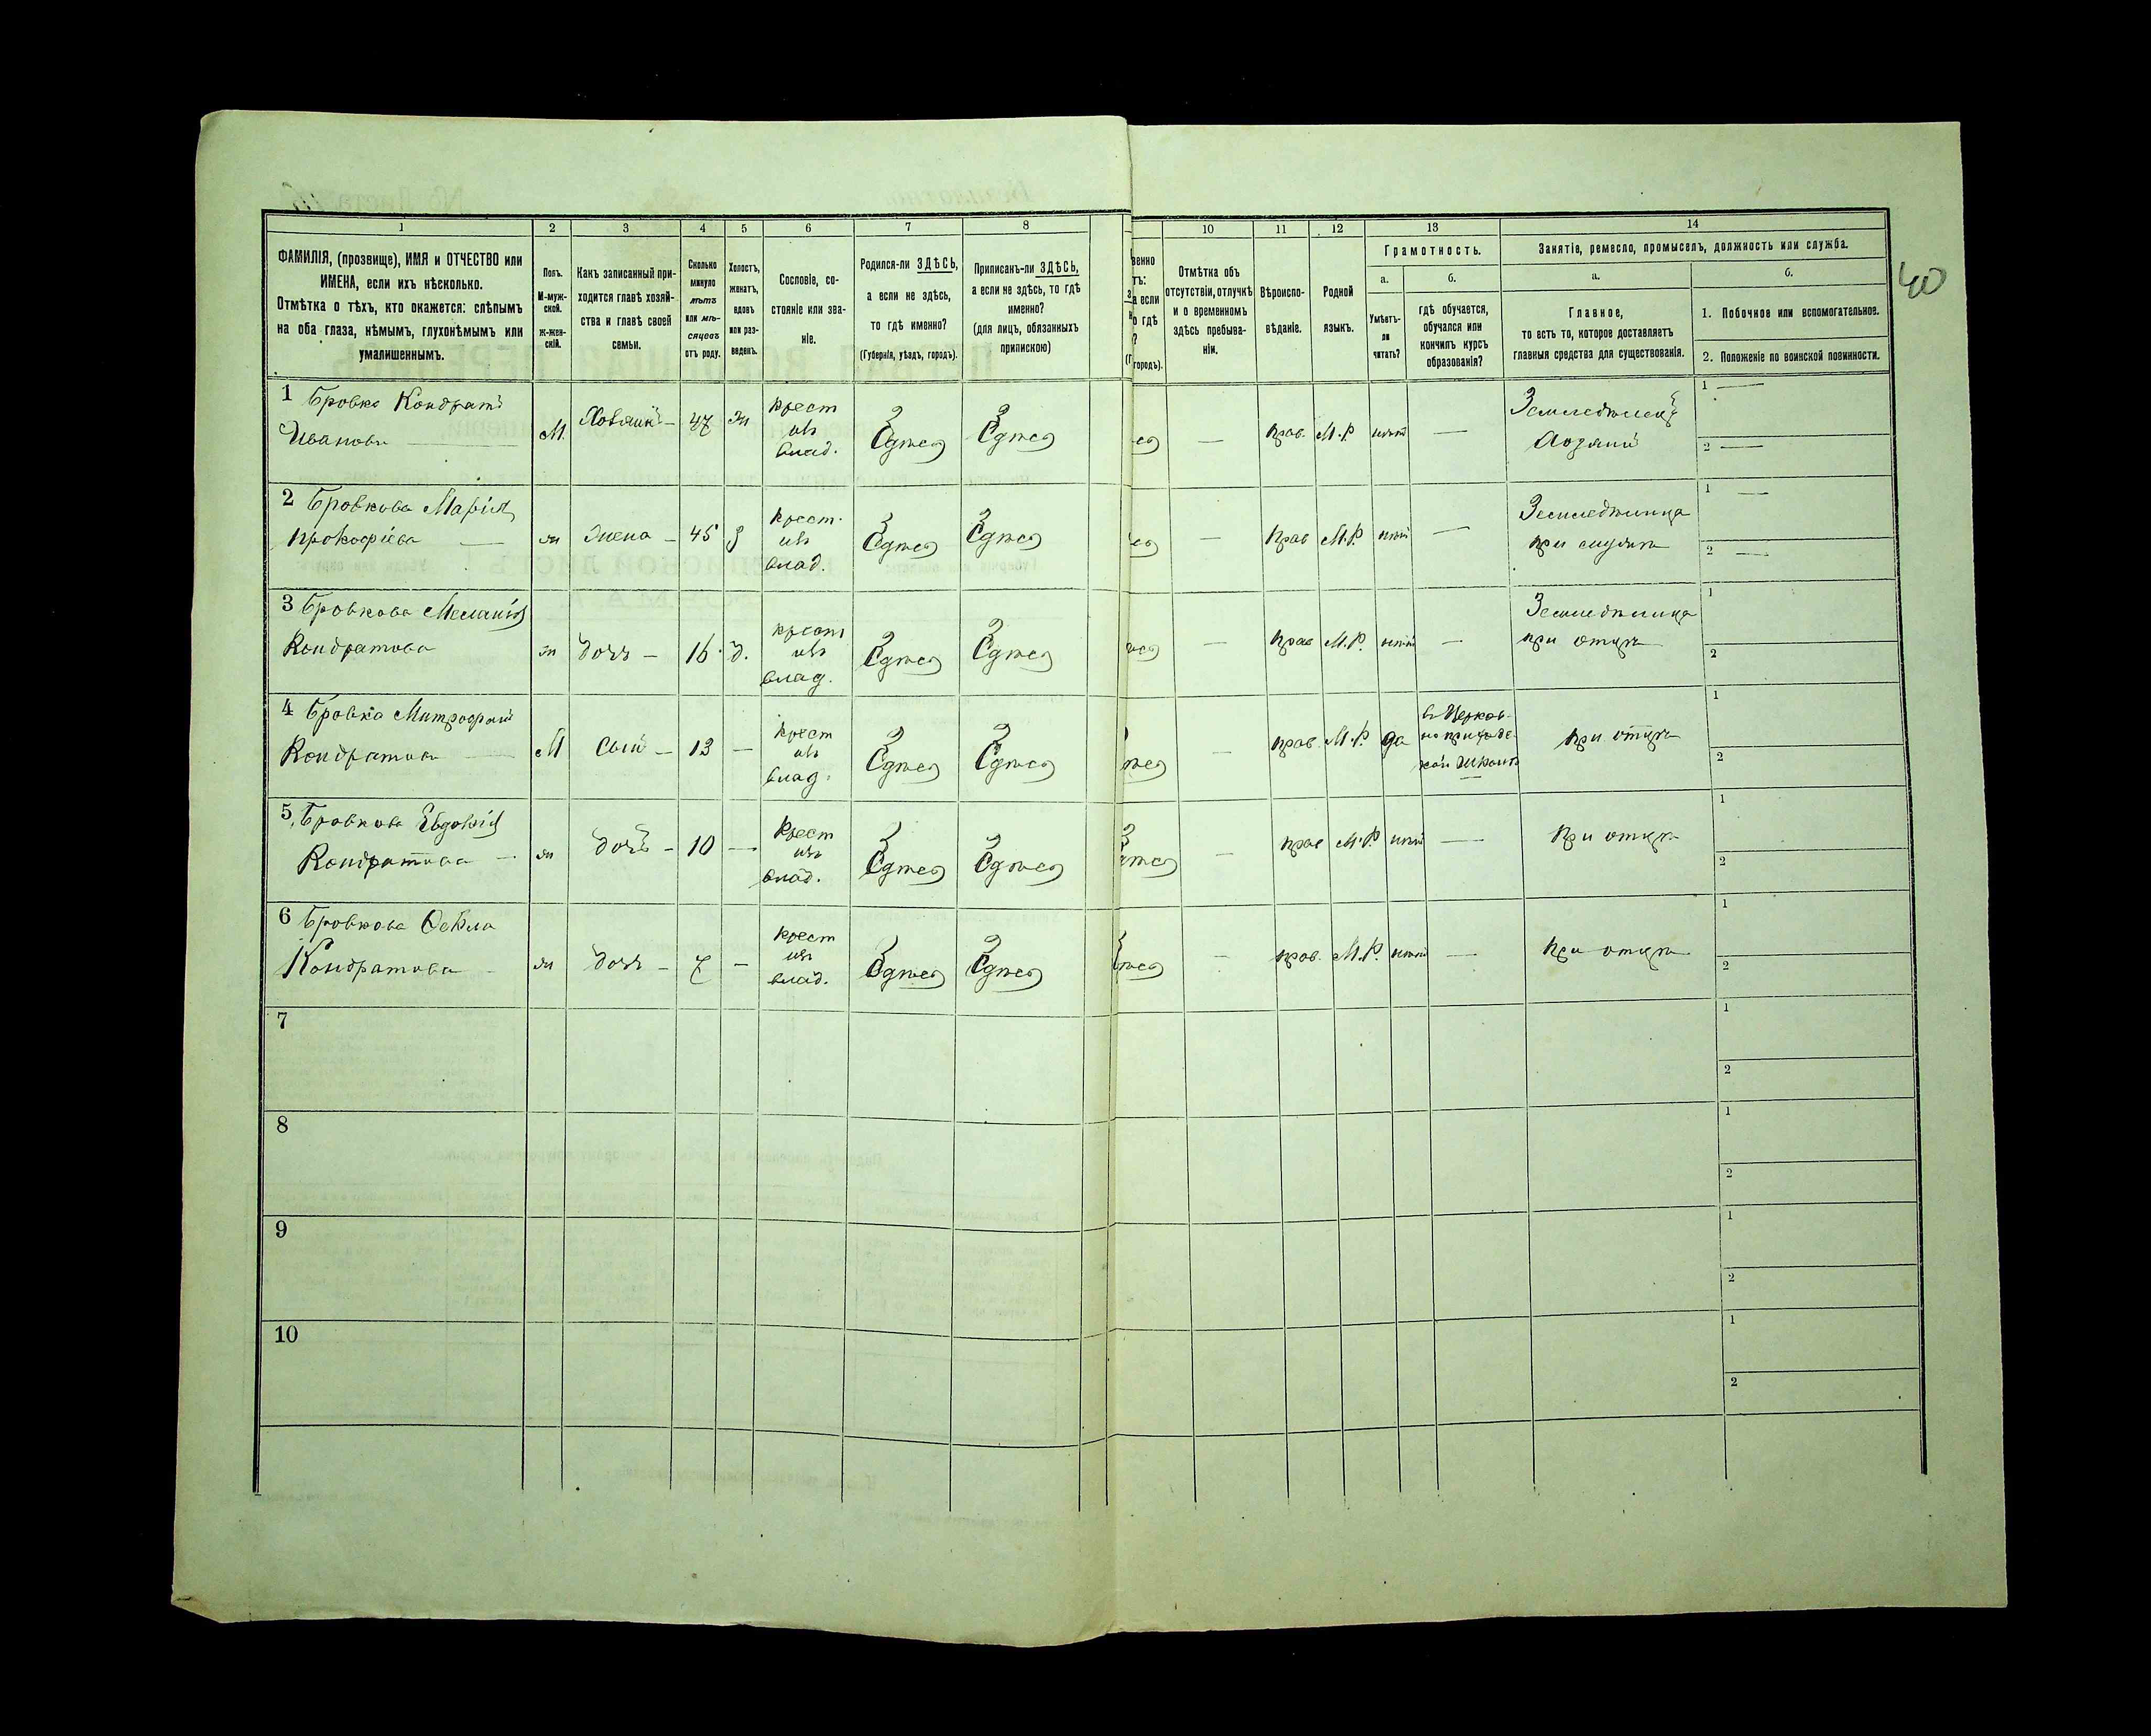 1
2
3
4
5
6
7
8
ФАМИЛІЯ, (прозвище), ИМЯ и ОТЧЕСТВО или
ИМЕНА, если ихъ нѣсколько.
Отмѣтка о тѣхъ, кто окажется: слѣпымъ
на оба глаза, нѣмымъ, глухонѣмымъ или
умалишеннымъ.
Полъ.
М-муж-
ской.
ж-жен-
скій.
Какъ записанный при-
ходится главѣ хозяй-
ства и главѣ своей
семьи.
Сколько
минуло
лѣтъ
или мѣ-
сяцевъ
отъ роду.
Холостъ,
женатъ,
вдовъ
или раз-
веденъ.
Сословіе, со-
стояніе или зва-
ніе.
Родился-ли ЗДѢСЬ,
а если не здѣсь,
то гдѣ именно?
(Губернія, уѣздъ, городъ).
Приписанъ-ли ЗДѢСЬ,
а если не здѣсь, то гдѣ
именно?
(для лицъ, обязанныхъ
припискою)
венно
тъ:
а если
о гдѣ
?
городъ).
10
11
12
13
14
Отмѣтка объ
отсутствіи, отлучкѣ
и о временномъ
здѣсь пребыва-
ніи.
Вѣроиспо-
вѣданіе.
Родной
языкъ.
Грамотность.
а.
б.
Умѣетъ-
ли
читать?
гдѣ обучается,
обучался или
кончилъ курсъ
образованія?
Занятіе, ремесло, промыселъ, должность или служба.
а.
б.
Главное,
то есть то, которое доставляетъ
главныя средства для существованія.
1. Побочное или вспомогательное.
2. Положеніе по воинской повинности.
40
1 Бровко Кондратъ
Ивановъ —
М.
Хозяинъ —
47
ж
крест
изъ
влад.
Здѣсь
Здѣсь
—
прав.
М.Р
нѣтъ
—
Земледѣлецъ
хозяинъ
1 —
2 —
2 Бровкова Марія
Прокофіева —
ж
жена —
45
з
крест.
изъ
влад.
Здѣсь
Здѣсь
—
прав
М.Р.
нѣтъ
—
Земледѣлица
при мужѣ
1 —
2 —
3 Бровкова Меланія
Кондратова
ж
дочь —
16.
д.
крест
изъ
влад.
Здѣсь
Здѣсь
—
прав
М.Р.
нѣтъ
—
Земледѣлица
при отцѣ
1
2
4 Бровко Митрофанъ
Кондратовъ —
М
сынъ —
13
—
крест
изъ
влад.
Здѣсь
Здѣсь
—
прав.
М.Р.
да
въ Церков-
но приходс-
кой школѣ
при отцѣ
1
2
5 Бровкова Евдокія
Кондратова —
ж
дочь —
10
—
крест
изъ
влад.
Здѣсь
Здѣсь
—
прав
М.Р.
нѣтъ
—
при отцѣ
1
2
6 Бровкова Ѳекла
Кондратова
ж
дочь —
7
—
крест
изъ
влад.
Здѣсь
Здѣсь
—
прав.
М.Р.
нѣтъ
—
при отцѣ
1
2
7
1
2
8
1
2
9
1
2
10
1
2